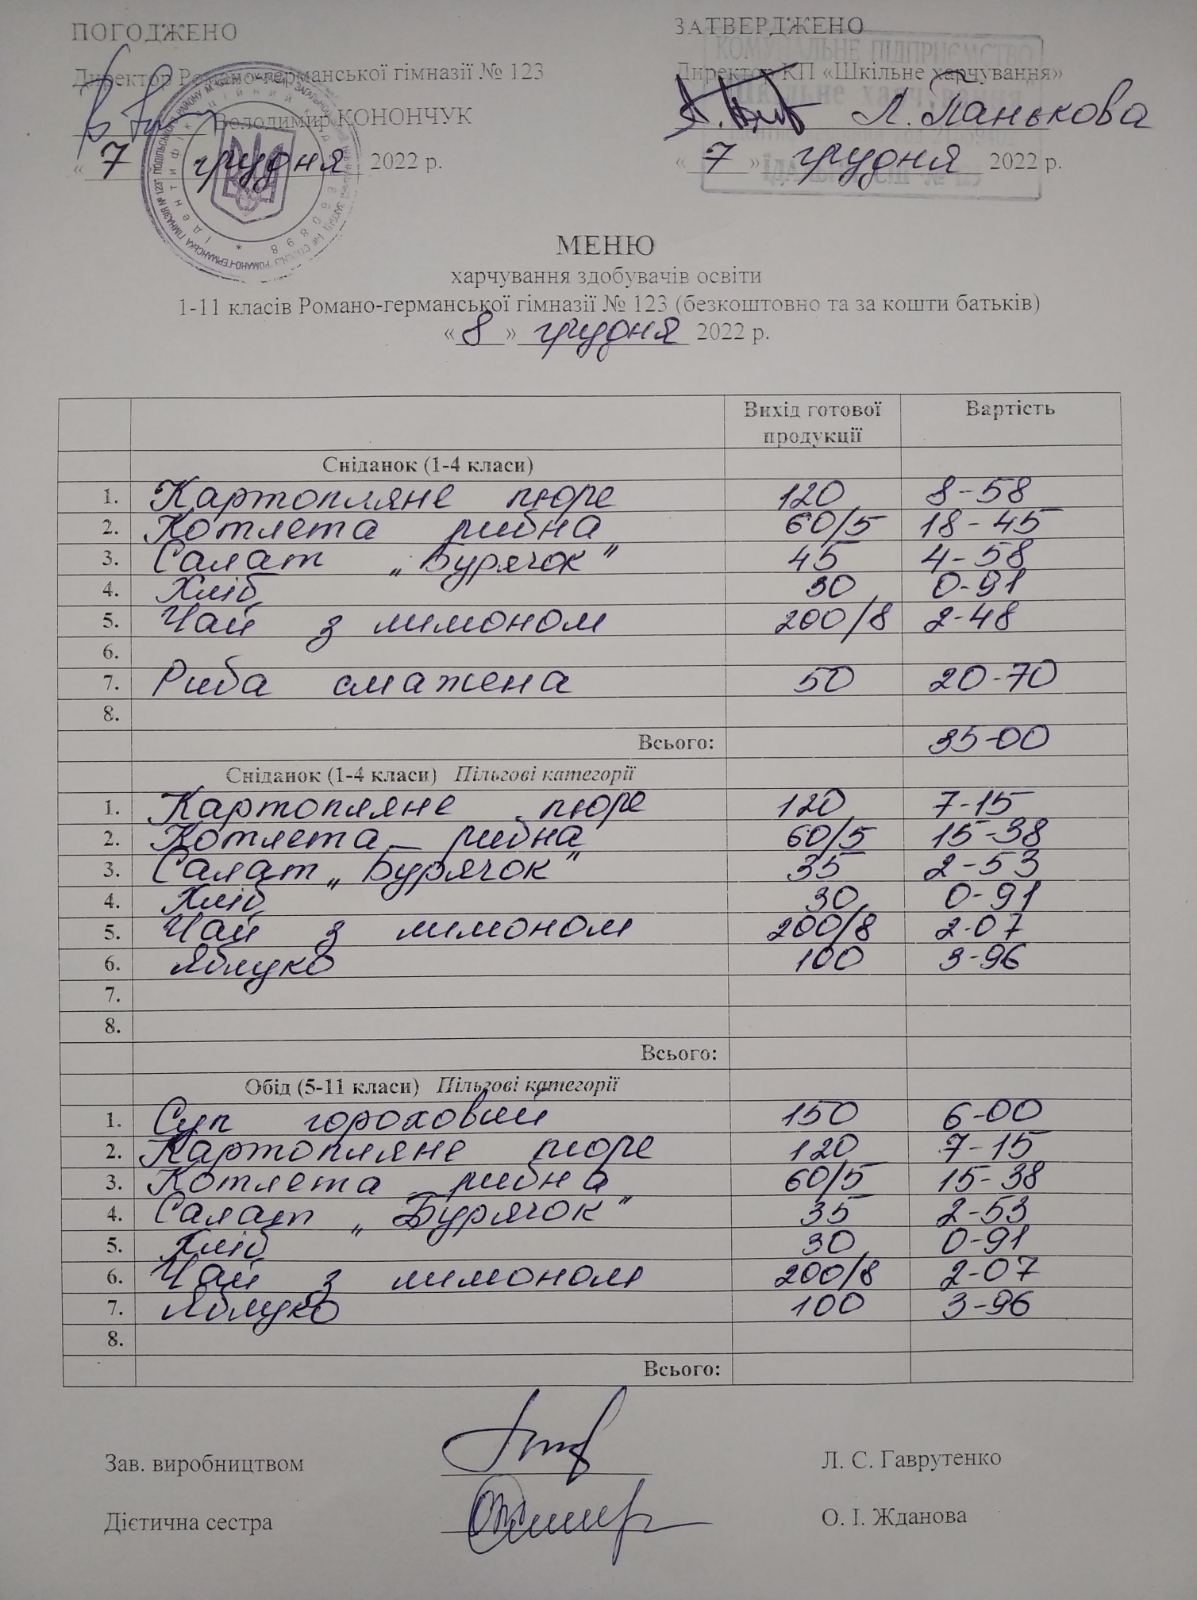 ПОГОДЖЕНО
Директор Романо-германської гімназії № 123
Володимир КОНОНЧУК
« 7 » грудня 2022 р.
ЗАТВЕРДЖЕНО
Директор КП «Шкільне харчування»
Л. Панькова
« 7 » грудня 2022 р.
КОМУНАЛЬНЕ ПІДПРИЄМСТВО
Шкільне харчування
МЕНЮ
харчування здобувачів освіти
1-11 класів Романо-германської гімназії № 123 (безкоштовно та за кошти батьків)
« 8 » грудня 2022 р.
Вихід готової продукції Вартість
Сніданок (1-4 класи)
1. Картопляне пюре 120 8-58
2. Котлета рибна 60/5 18-45
3. Салат „Бурячок" 45 4-58
4. Хліб 30 0-91
5. Чай з лимоном 200/8 2-48
6.
7. Риба смажена 50 20-70
8.
Всього: 35-00
Сніданок (1-4 класи) Пільгові категорії
1. Картопляне пюре 120 7-15
2. Котлета рибна 60/5 15-38
3. Салат „Бурячок" 35 2-53
4. Хліб 30 0-91
5. Чай з лимоном 200/8 2-07
6. Яблуко 100 3-96
7.
8.
Всього:
Обід (5-11 класи) Пільгові категорії
1. Суп гороховий 150 6-00
2. Картопляне пюре 120 7-15
3. Котлета рибна 60/5 15-38
4. Салат „Бурячок" 35 2-53
5. Хліб 30 0-91
6. Чай з лимоном 200/8 2-07
7. Яблуко 100 3-96
8.
Всього:
Зав. виробництвом Л. С. Гаврутенко
Дієтична сестра О. І. Жданова